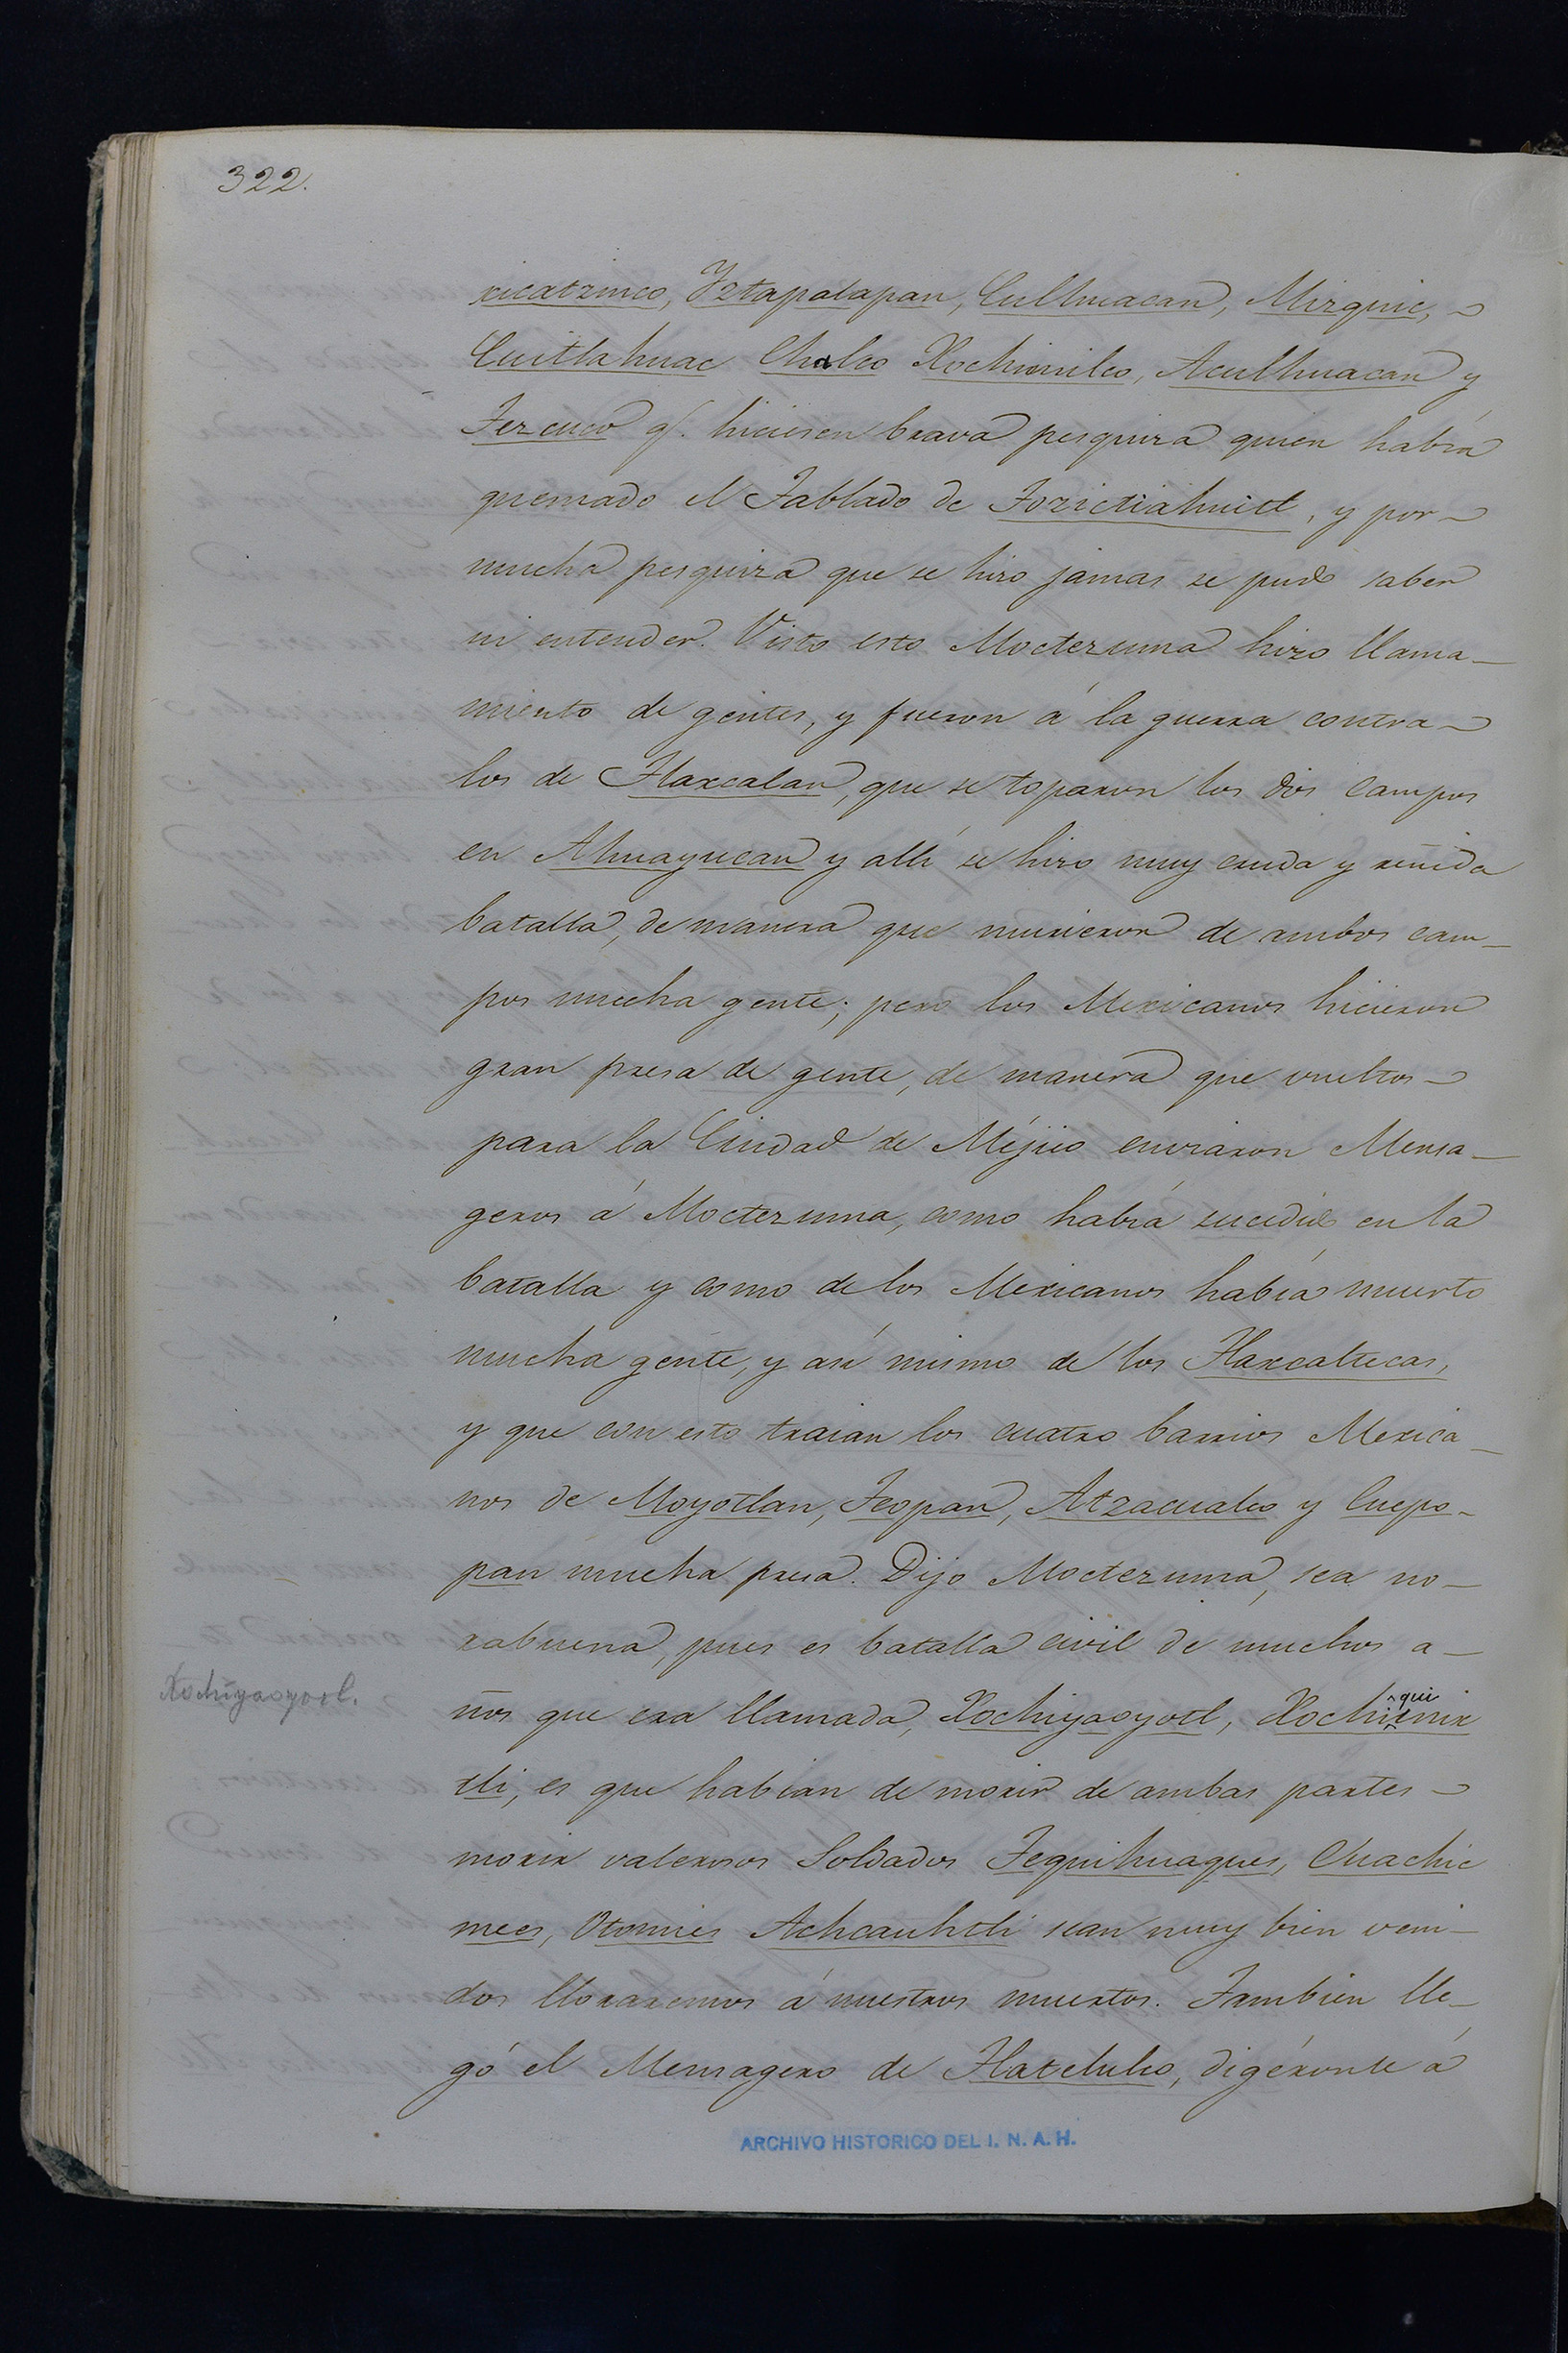 322.
xicatzinco, Yztapalapan, Culhuacan, Mizquic,
Cuitlahuac Chalco Xochimilco, Aculhuacan y
Tezcuco q. hiciesen brava pesquiza quien habia
quemado el Tablado de Tozictiahuitl, y por
mucha pesquiza que se hizo jamas se pudo saber
ni entender. Visto esto Moctezuma hizo llama-
miento de gentes, y fueron á la guerra contra
los de Tlaxcalan, que se toparon los dos campos
en Ahuayucan y allí se hizo muy cruda y reñida
batalla, de manera que murieron de ambos cam-
pos mucha gente; pero los Mexicanos hicieron
gran presa de gente, de manera que vueltos
para la Ciudad de Méjico enviaron Mensa-
geros á Moctezuma, como habia sucedido en la
batalla y como de los Mexicanos habia muerto
mucha gente, y así mismo de los Tlaxcaltecas,
y que con esto traian los cuatro barrios Mexica-
nos de Moyotlan, Teopan, Atzacualco y Cuepo-
pan mucha presa. Dijo Moctezuma, sea no-
rabuena, pues es batalla civil de muchos a-
Xochiyaoyotl.
ños que era llamada, Xochiyaoyotl, Xochi^qui
tli, es que habian de morir de ambas partes
morir valerosos Soldados Tequihuaques, Cuachic
mees, Otomies Achcauhtli sean muy bien veni-
dos lloraremos á nuestros muertos. Tambien lle-
gó el Mensagero de Tlatelulco, digéronle á
ARCHIVO HISTORICO DEL I. N. A. H.